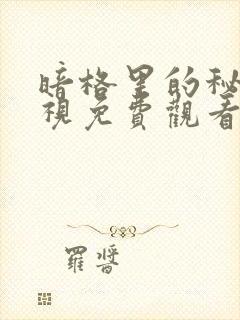 暗格里的秘
視免費觀看
羅晉